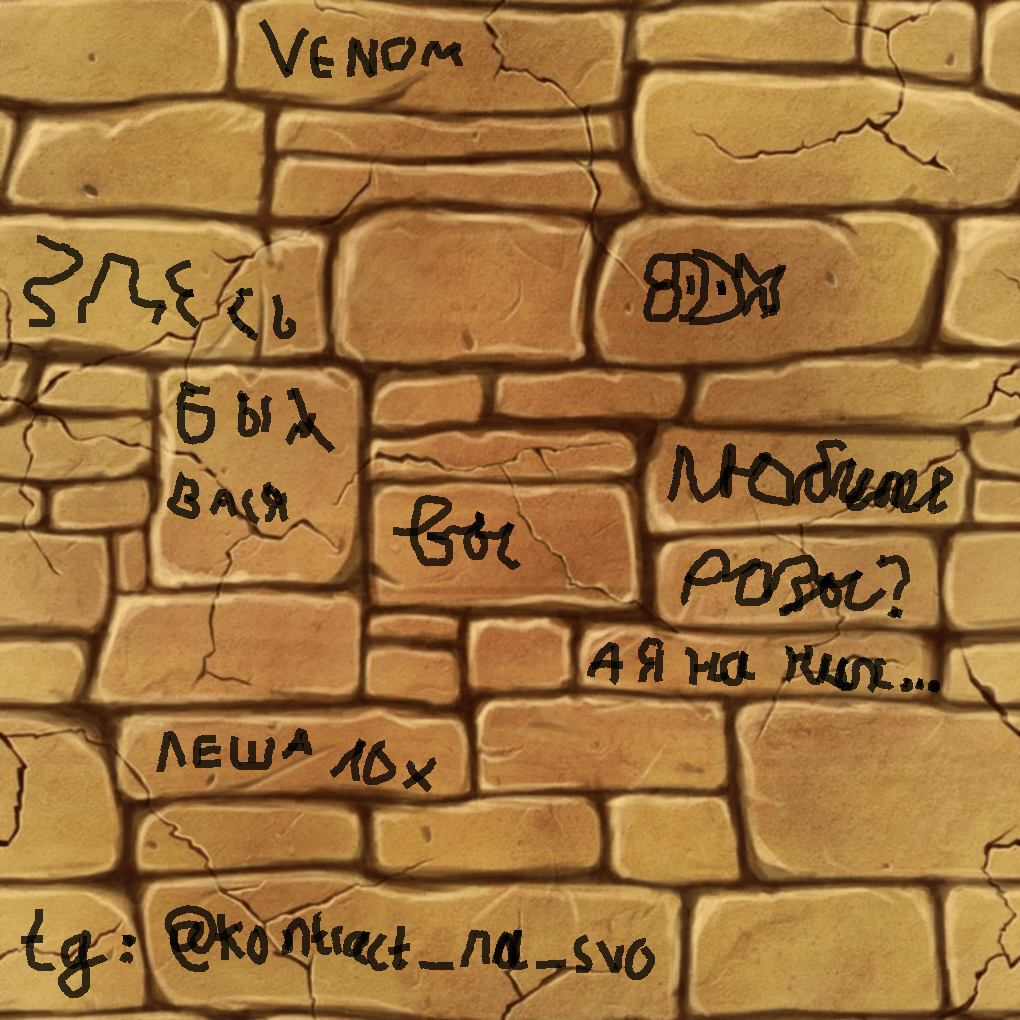 VENOM
ЗДЕСЬ
БЫЛ
ВАСЯ
Вы
Любите
розы?
А Я на них...
ЛЕША 10х
tg: @kontract_na_svo